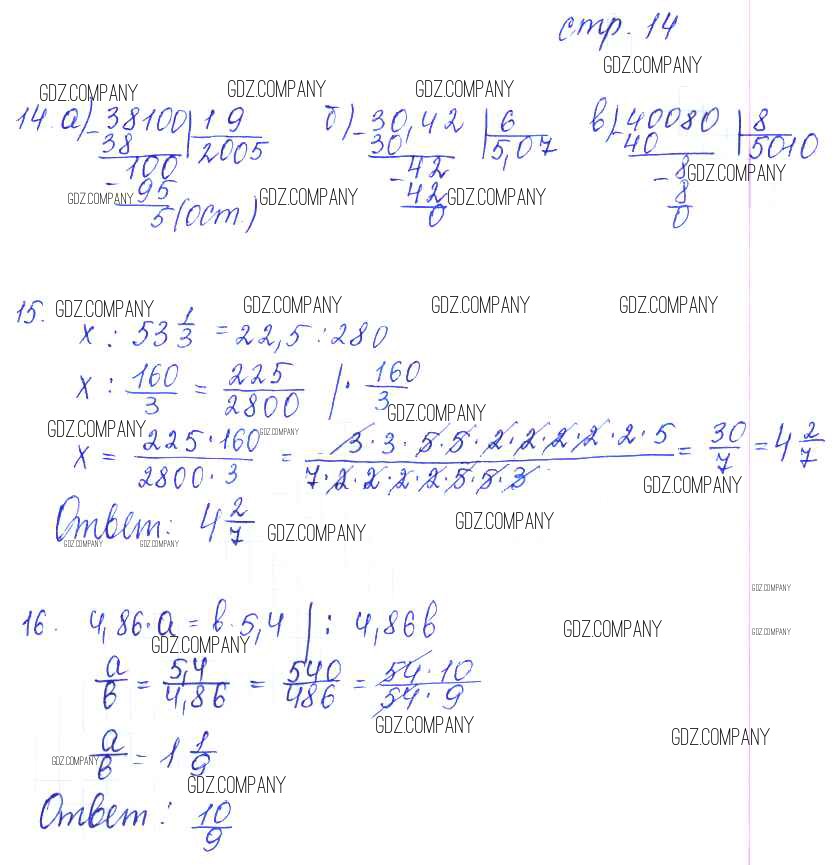 стр. 14
GDZ.COMPANY
GDZ.COMPANY GDZ.COMPANY GDZ.COMPANY
14. а) -38100 | 19 б) -30,42 | 6 в) -40080 | 8
38 2005 30 5,07 40 5010
100 -42 -8 GDZ.COMPANY
-95 42 8
GDZ.COMPANY 5 (ост.) GDZ.COMPANY 0 GDZ.COMPANY 0
15. GDZ.COMPANY GDZ.COMPANY GDZ.COMPANY GDZ.COMPANY
x : 53 1/3 = 22,5 : 280
x : 160/3 = 225/2800 | · 160/3
GDZ.COMPANY
GDZ.COMPANY GDZ.COMPANY
x = 225·160/2800·3 = 3·3·5·5·2·2·2·2·2·5/7·2·2·2·2·5·5·3 = 30/7 = 4 2/7
GDZ.COMPANY
Ответ: 4 2/7 GDZ.COMPANY GDZ.COMPANY
GDZ.COMPANY GDZ.COMPANY
GDZ.COMPANY
16. 4,86·а = в·5,4 | : 4,86в
GDZ.COMPANY GDZ.COMPANY GDZ.COMPANY
а/в = 5,4/4,86 = 540/486 = 54·10/54·9
GDZ.COMPANY GDZ.COMPANY
а/в = 1 1/9
GDZ.COMPANY
GDZ.COMPANY
Ответ: 10/9